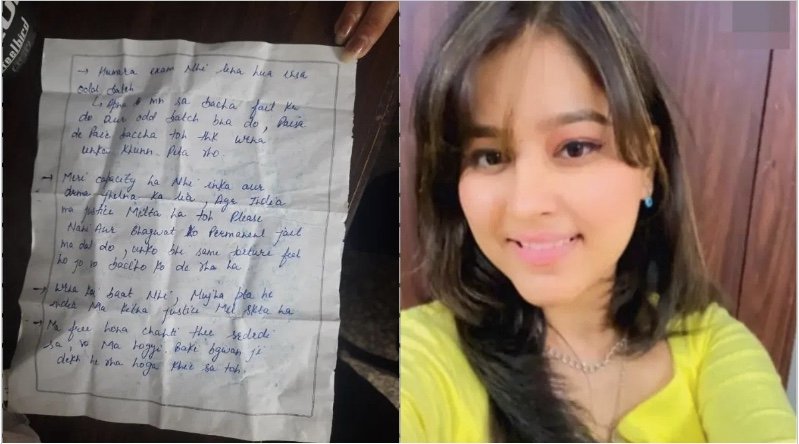 steelbird
→ Humara exam Nhi lena hua isa
odd batch
↳ Apna mn sa bacha fail kr
do aur odd batch bna do, Paisa
de Paie baccha toh thk wrna
unka Khunn Pita rho.
→ Meri capacity ha Nhi inka aur
drma jhelna ka lia, Agr India
ma justice Milta ha toh Please
Nan Aur Bhagwat ko Permanent jail
ma dal do, unko bhi same torture feel
ho jo vo baccho ko de rha ha
→ Wrsa koi baat Nhi, Mujha pta he
India Ma kitna justice Mil skta ha
→ Ma free hona chahti thee
sa vo Ma hoggyi. Baki bgwan ji
dekh he rha hoga Kher sa toh.